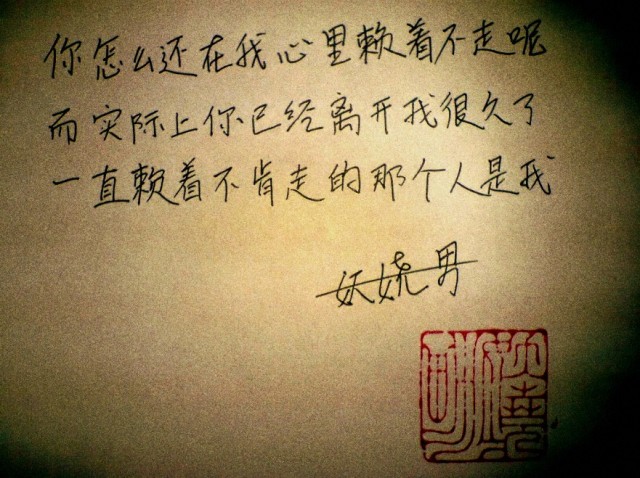 你怎么还在我心里赖着不走呢
而实际上你已经离开我很久了
一直赖着不肯走的那个人是我
妖娆男